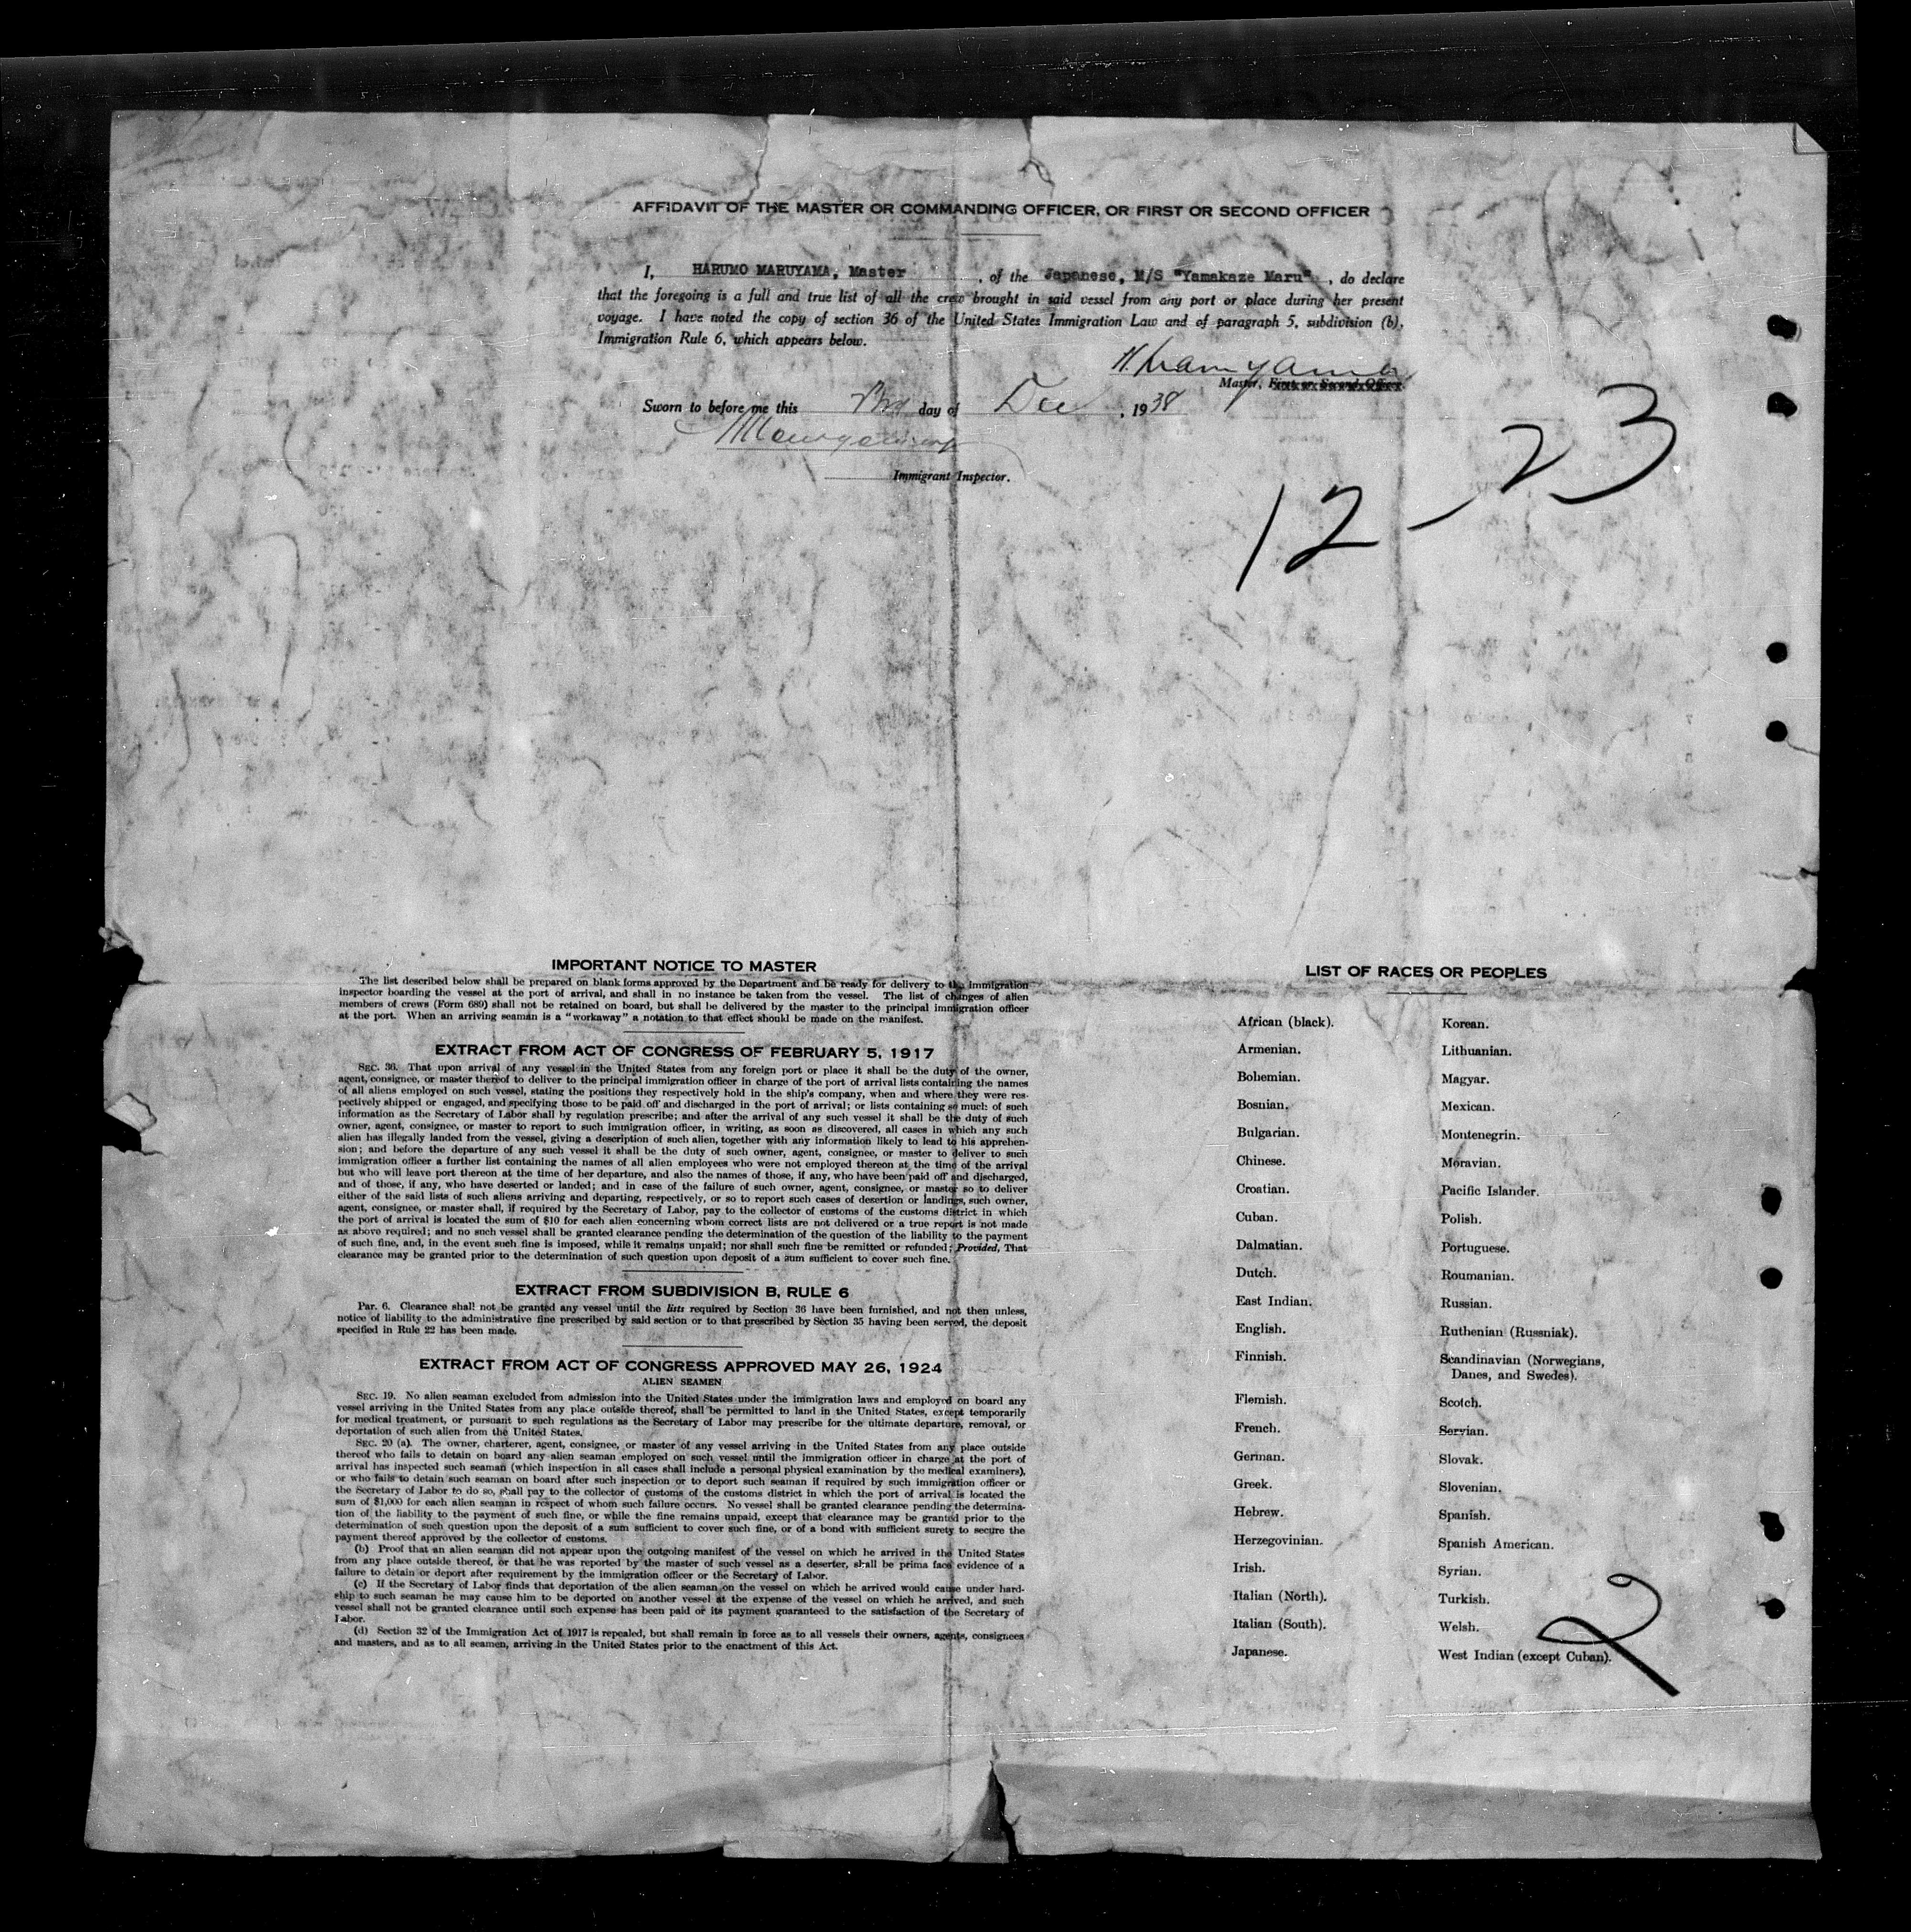 AFFIDAVIT OF THE MASTER OR COMMANDING OFFICER, OR FIRST OR SECOND OFFICER
I, HARUMO MARUYAMA, Master , of the Japanese, M/S "Yamakaze Maru" , do declare
that the foregoing is a full and true list of all the crew brought in said vessel from any port or place during her present
voyage. I have noted the copy of section 36 of the United States Immigration Law and of paragraph 5, subdivision (b),
Immigration Rule 6, which appears below.
H. Maruyama
Master, First or Second Officer.
Sworn to before me this day of Dec , 1938
Immigrant Inspector.
12-23
IMPORTANT NOTICE TO MASTER
The list described below shall be prepared on blank forms approved by the Department and be ready for delivery to the immigration
inspector boarding the vessel at the port of arrival, and shall in no instance be taken from the vessel. The list of changes of alien
members of crews (Form 689) shall not be retained on board, but shall be delivered by the master to the principal immigration officer
at the port. When an arriving seaman is a "workaway" a notation to that effect should be made on the manifest.
EXTRACT FROM ACT OF CONGRESS OF FEBRUARY 5, 1917
SEC. 36. That upon arrival of any vessel in the United States from any foreign port or place it shall be the duty of the owner,
agent, consignee, or master thereof to deliver to the principal immigration officer in charge of the port of arrival lists containing the names
of all aliens employed on such vessel, stating the positions they respectively hold in the ship's company, when and where they were res-
pectively shipped or engaged, and specifying those to be paid off and discharged in the port of arrival; or lists containing so much of such
information as the Secretary of Labor shall by regulation prescribe; and after the arrival of any such vessel it shall be the duty of such
owner, agent, consignee, or master to report to such immigration officer, in writing, as soon as discovered, all cases in which any such
alien has illegally landed from the vessel, giving a description of such alien, together with any information likely to lead to his apprehen-
sion; and before the departure of any such vessel it shall be the duty of such owner, agent, consignee, or master to deliver to such
immigration officer a further list containing the names of all alien employees who were not employed thereon at the time of the arrival
but who will leave port thereon at the time of her departure, and also the names of those, if any, who have been paid off and discharged,
and of those, if any, who have deserted or landed; and in case of the failure of such owner, agent, consignee, or master so to deliver
either of the said lists of such aliens arriving and departing, respectively, or so to report such cases of desertion or landings, such owner,
agent, consignee, or master shall, if required by the Secretary of Labor, pay to the collector of customs of the customs district in which
the port of arrival is located the sum of $10 for each alien concerning whom correct lists are not delivered or a true report is not made
as above required; and no such vessel shall be granted clearance pending the determination of the question of the liability to the payment
of such fine, and, in the event such fine is imposed, while it remains unpaid; nor shall such fine be remitted or refunded: Provided, That
clearance may be granted prior to the determination of such question upon deposit of a sum sufficient to cover such fine.
EXTRACT FROM SUBDIVISION B, RULE 6
Par. 6. Clearance shall not be granted any vessel until the lists required by Section 36 have been furnished, and not then unless,
notice of liability to the administrative fine prescribed by said section or to that prescribed by Section 35 having been served, the deposit
specified in Rule 22 has been made.
EXTRACT FROM ACT OF CONGRESS APPROVED MAY 26, 1924
ALIEN SEAMEN
SEC. 19. No alien seaman excluded from admission into the United States under the immigration laws and employed on board any
vessel arriving in the United States from any place outside thereof, shall be permitted to land in the United States, except temporarily
for medical treatment, or pursuant to such regulations as the Secretary of Labor may prescribe for the ultimate departure, removal, or
deportation of such alien from the United States.
SEC. 20 (a). The owner, charterer, agent, consignee, or master of any vessel arriving in the United States from any place outside
thereof who fails to detain on board any alien seaman employed on such vessel until the immigration officer in charge at the port of
arrival has inspected such seaman (which inspection in all cases shall include a personal physical examination by the medical examiners),
or who fails to detain such seaman on board after such inspection or to deport such seaman if required by such immigration officer or
the Secretary of Labor to do so, shall pay to the collector of customs of the customs district in which the port of arrival is located the
sum of $1,000 for each alien seaman in respect of whom such failure occurs. No vessel shall be granted clearance pending the determina-
tion of the liability to the payment of such fine, or while the fine remains unpaid, except that clearance may be granted prior to the
determination of such question upon the deposit of a sum sufficient to cover such fine, or of a bond with sufficient surety to secure the
payment thereof approved by the collector of customs.
(b) Proof that an alien seaman did not appear upon the outgoing manifest of the vessel on which he arrived in the United States
from any place outside thereof, or that he was reported by the master of such vessel as a deserter, shall be prima face evidence of a
failure to detain or deport after requirement by the immigration officer or the Secretary of Labor.
(c) If the Secretary of Labor finds that deportation of the alien seaman on the vessel on which he arrived would cause under hard-
ship to such seaman he may cause him to be deported on another vessel at the expense of the vessel on which he arrived, and such
vessel shall not be granted clearance until such expense has been paid or its payment guaranteed to the satisfaction of the Secretary of
Labor.
(d) Section 32 of the Immigration Act of 1917 is repealed, but shall remain in force as to all vessels their owners, agents, consignees
and masters, and as to all seamen, arriving in the United States prior to the enactment of this Act.
LIST OF RACES OR PEOPLES
African (black).
Armenian.
Bohemian.
Bosnian.
Bulgarian.
Chinese.
Croatian.
Cuban.
Dalmatian.
Dutch.
East Indian.
English.
Finnish.
Flemish.
French.
German.
Greek.
Hebrew.
Herzegovinian.
Irish.
Italian (North).
Italian (South).
Japanese.
Korean.
Lithuanian.
Magyar.
Mexican.
Montenegrin.
Moravian.
Pacific Islander.
Polish.
Portuguese.
Roumanian.
Russian.
Ruthenian (Russniak).
Scandinavian (Norwegians,
Danes, and Swedes).
Scotch.
Servian.
Slovak.
Slovenian.
Spanish.
Spanish American.
Syrian.
Turkish.
Welsh.
West Indian (except Cuban).
2